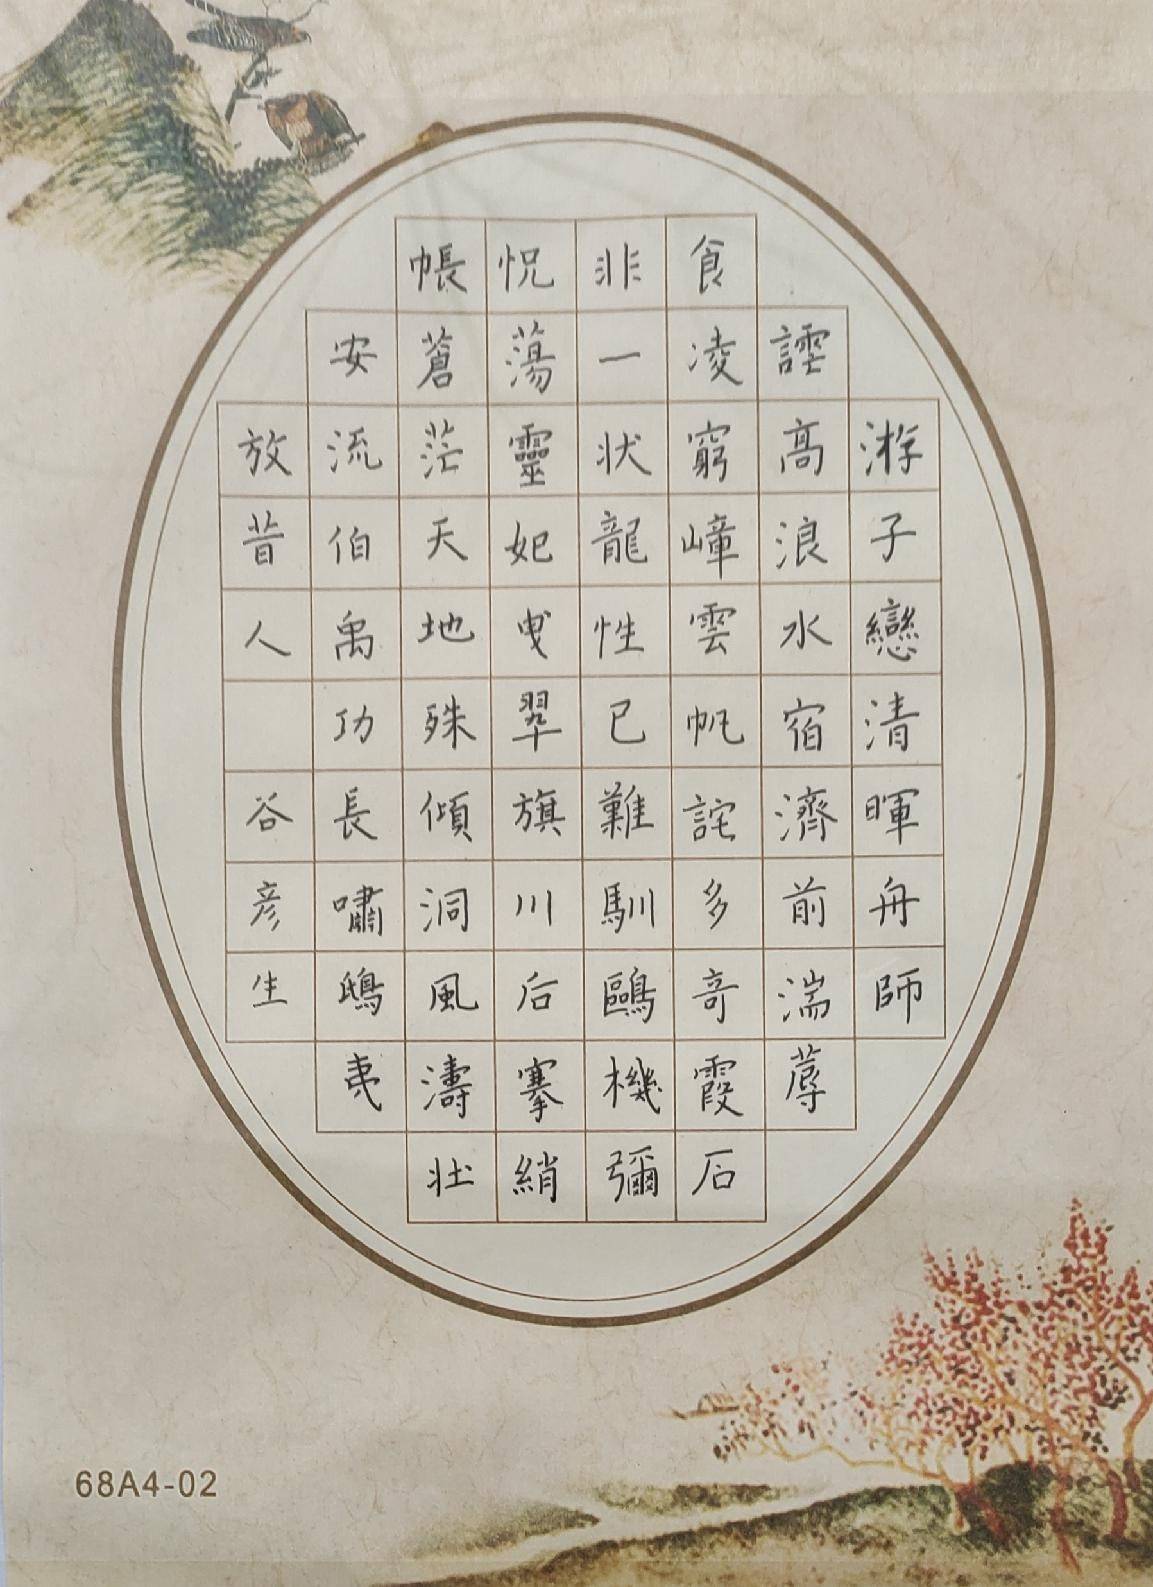 游子戀清暉舟師
謔高浪水宿濟前湍蓐
食凌窮嶂雲帆詫多奇霞石
非一状龍性已難馴鷗機彌
怳蕩靈妃曳翆旗川后搴綃
帳蒼茫天地殊傾洞風濤壯
安流伯禹功長嘯鴟夷
放昔人 谷彦生
68A4-02